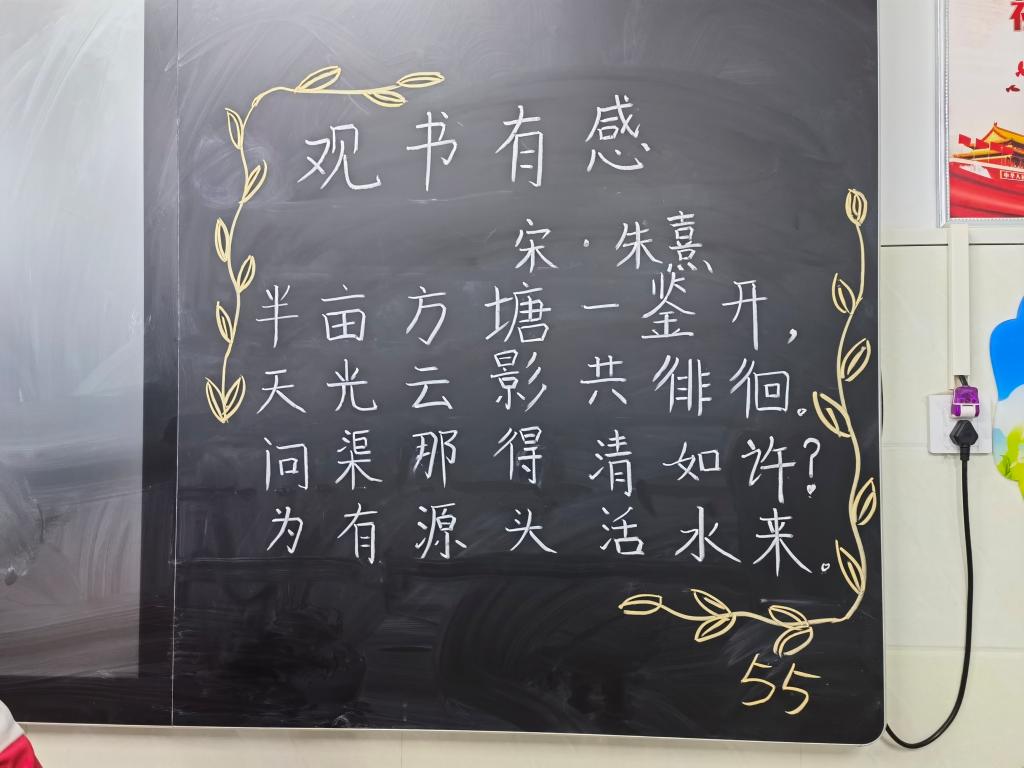 观书有感
宋·朱熹
半亩方塘一鉴开，
天光云影共徘徊。
问渠那得清如许？
为有源头活水来。
55